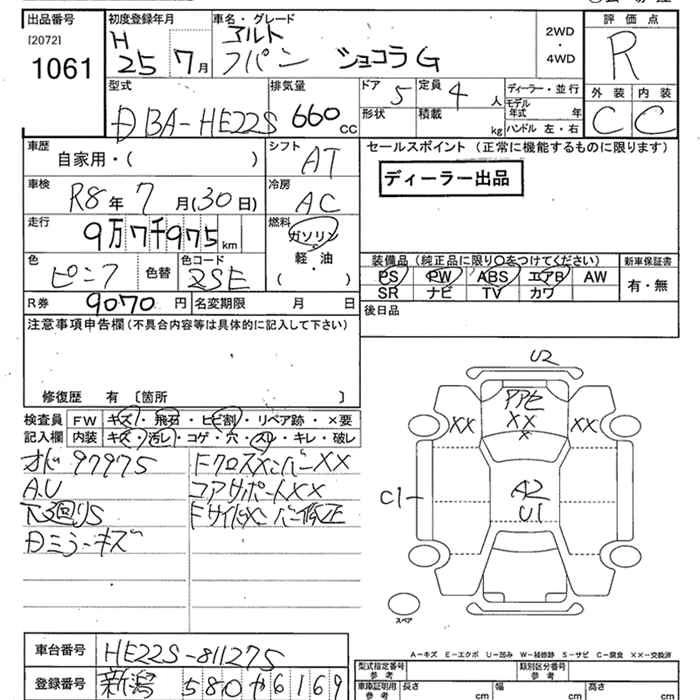 出品番号
[2072]
1061
初度登録年月
H
25 7月
車名・グレード
アルト
ラパン ショコラG
2WD
・
4WD
評価点
R
外装 内装
C C
型式
DBA-HE22S
排気量
660 cc
ドア 5
定員 4 人
形状
積載 kg
ディーラー・並行
モデル年式 年
ハンドル 左・右
車歴
自家用・( )
シフト
AT
車検
R8年 7月(30日)
冷房
AC
走行
9万7千975 km
燃料
ガソリン
・
軽・油
( )
色
ピンク
色替
色コード
ZSE
R券 9070円
名変期限 月 日
セールスポイント (正常に機能するものに限ります)
ディーラー出品
装備品 (純正品に限り○をつけてください)
PS PW ABS エアB AW
SR ナビ TV カワ
新車保証書
有・無
後日品
注意事項申告欄 (不具合内容等は具体的に記入して下さい)
修復歴 有 〔箇所 〕
検査員
記入欄
FW キズ・飛石・ヒビ割・リペア跡・×要
内装 キズ・汚レ・コゲ・穴・スレ・キレ・破レ
オド 97975
A.U
下廻りS
Dミラーキズ
FクロスメンバーXX
コアサポートXX
U2
PPE
XX
×
XX
XX
C1
A2
U1
スペア
A－キズ E－エクボ U－凹み W－補修跡 S－サビ C－腐食 ××－交換済
車台番号 HE22S-811275
登録番号 新潟 580 か 6169
型式指定番号
参考
類別区分番号
参考
車庫証明用
参考
長さ cm
幅 cm
高さ cm